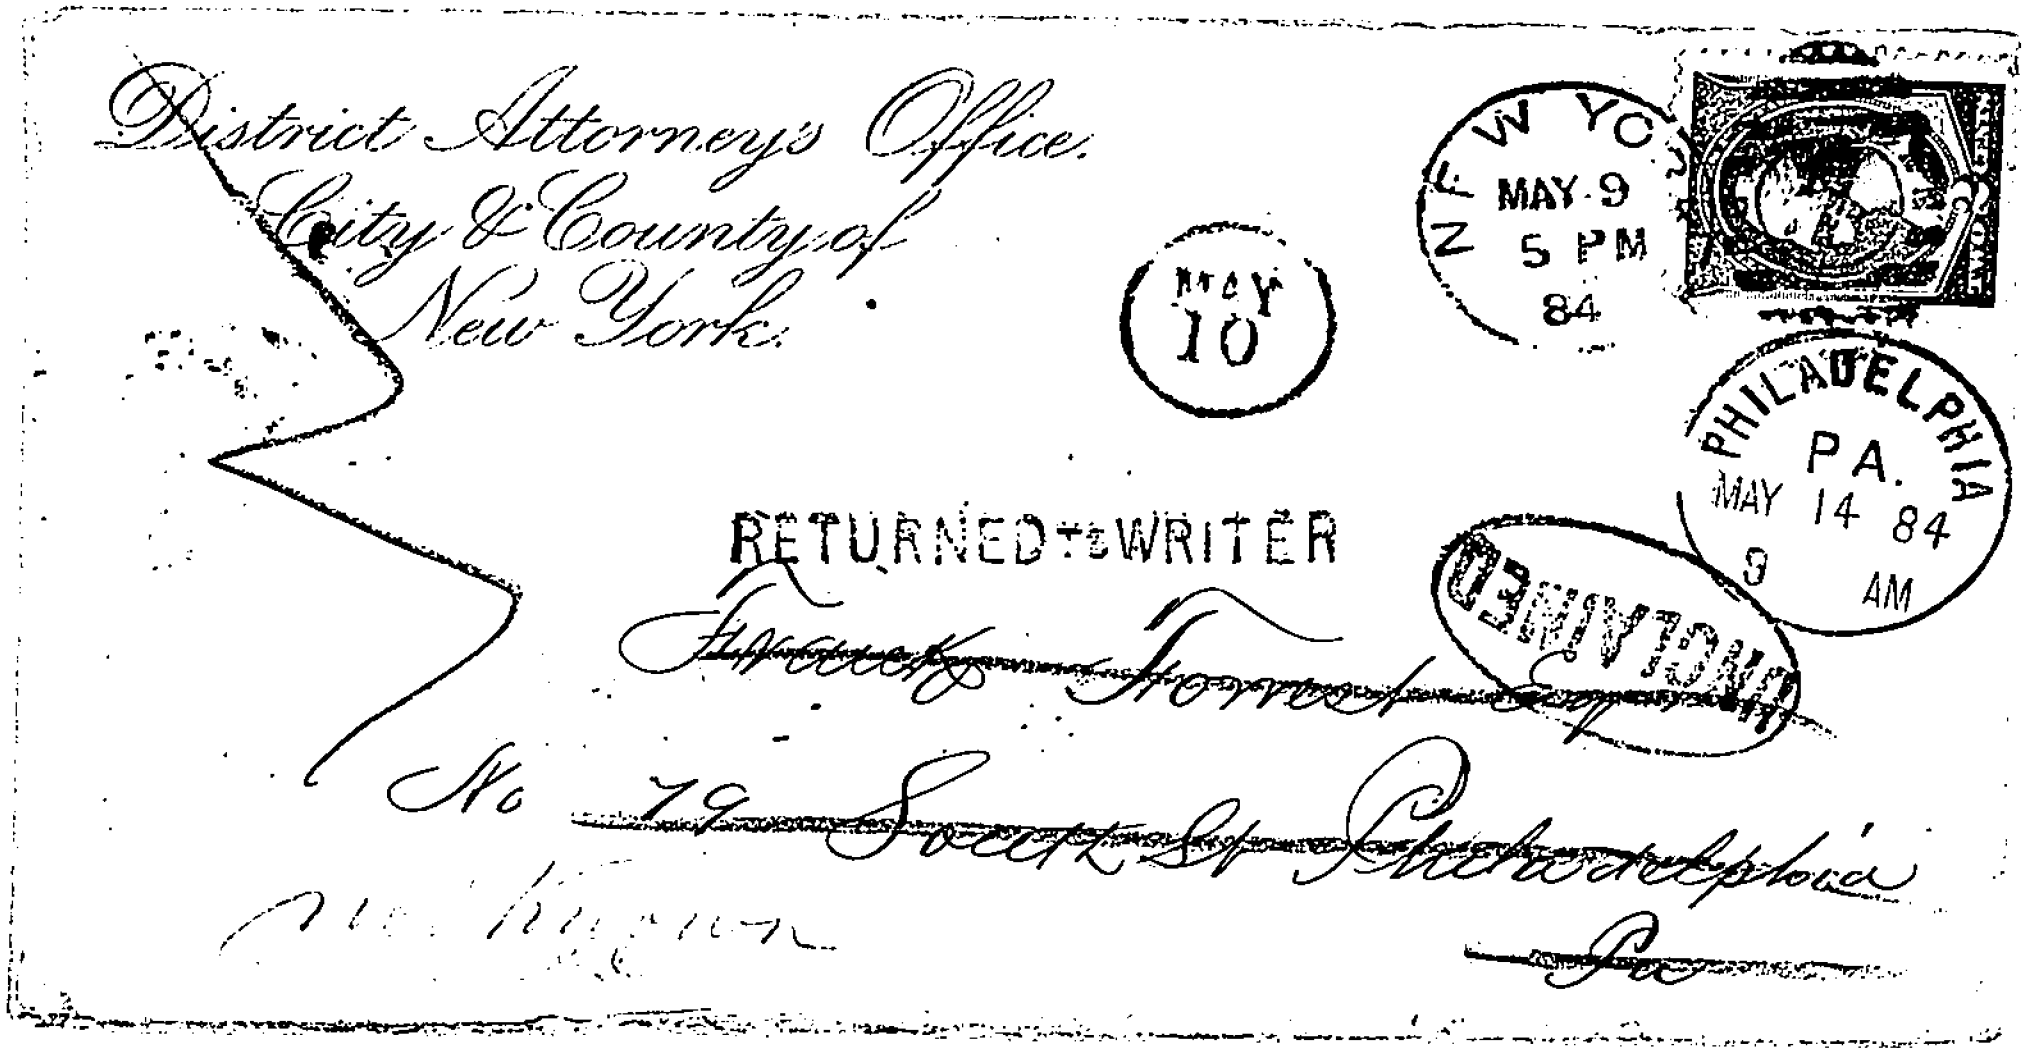 District Attorney's Office.
City & County of
New York.
NEW YO
MAY 9
5 PM
84
MAY
10
PHILADELPHIA
PA.
MAY 14 84
9 AM
RETURNED TO WRITER
UNCLAIMED
Frank Forrest Esq
No 79 South St Philadelphia
Pa
not known